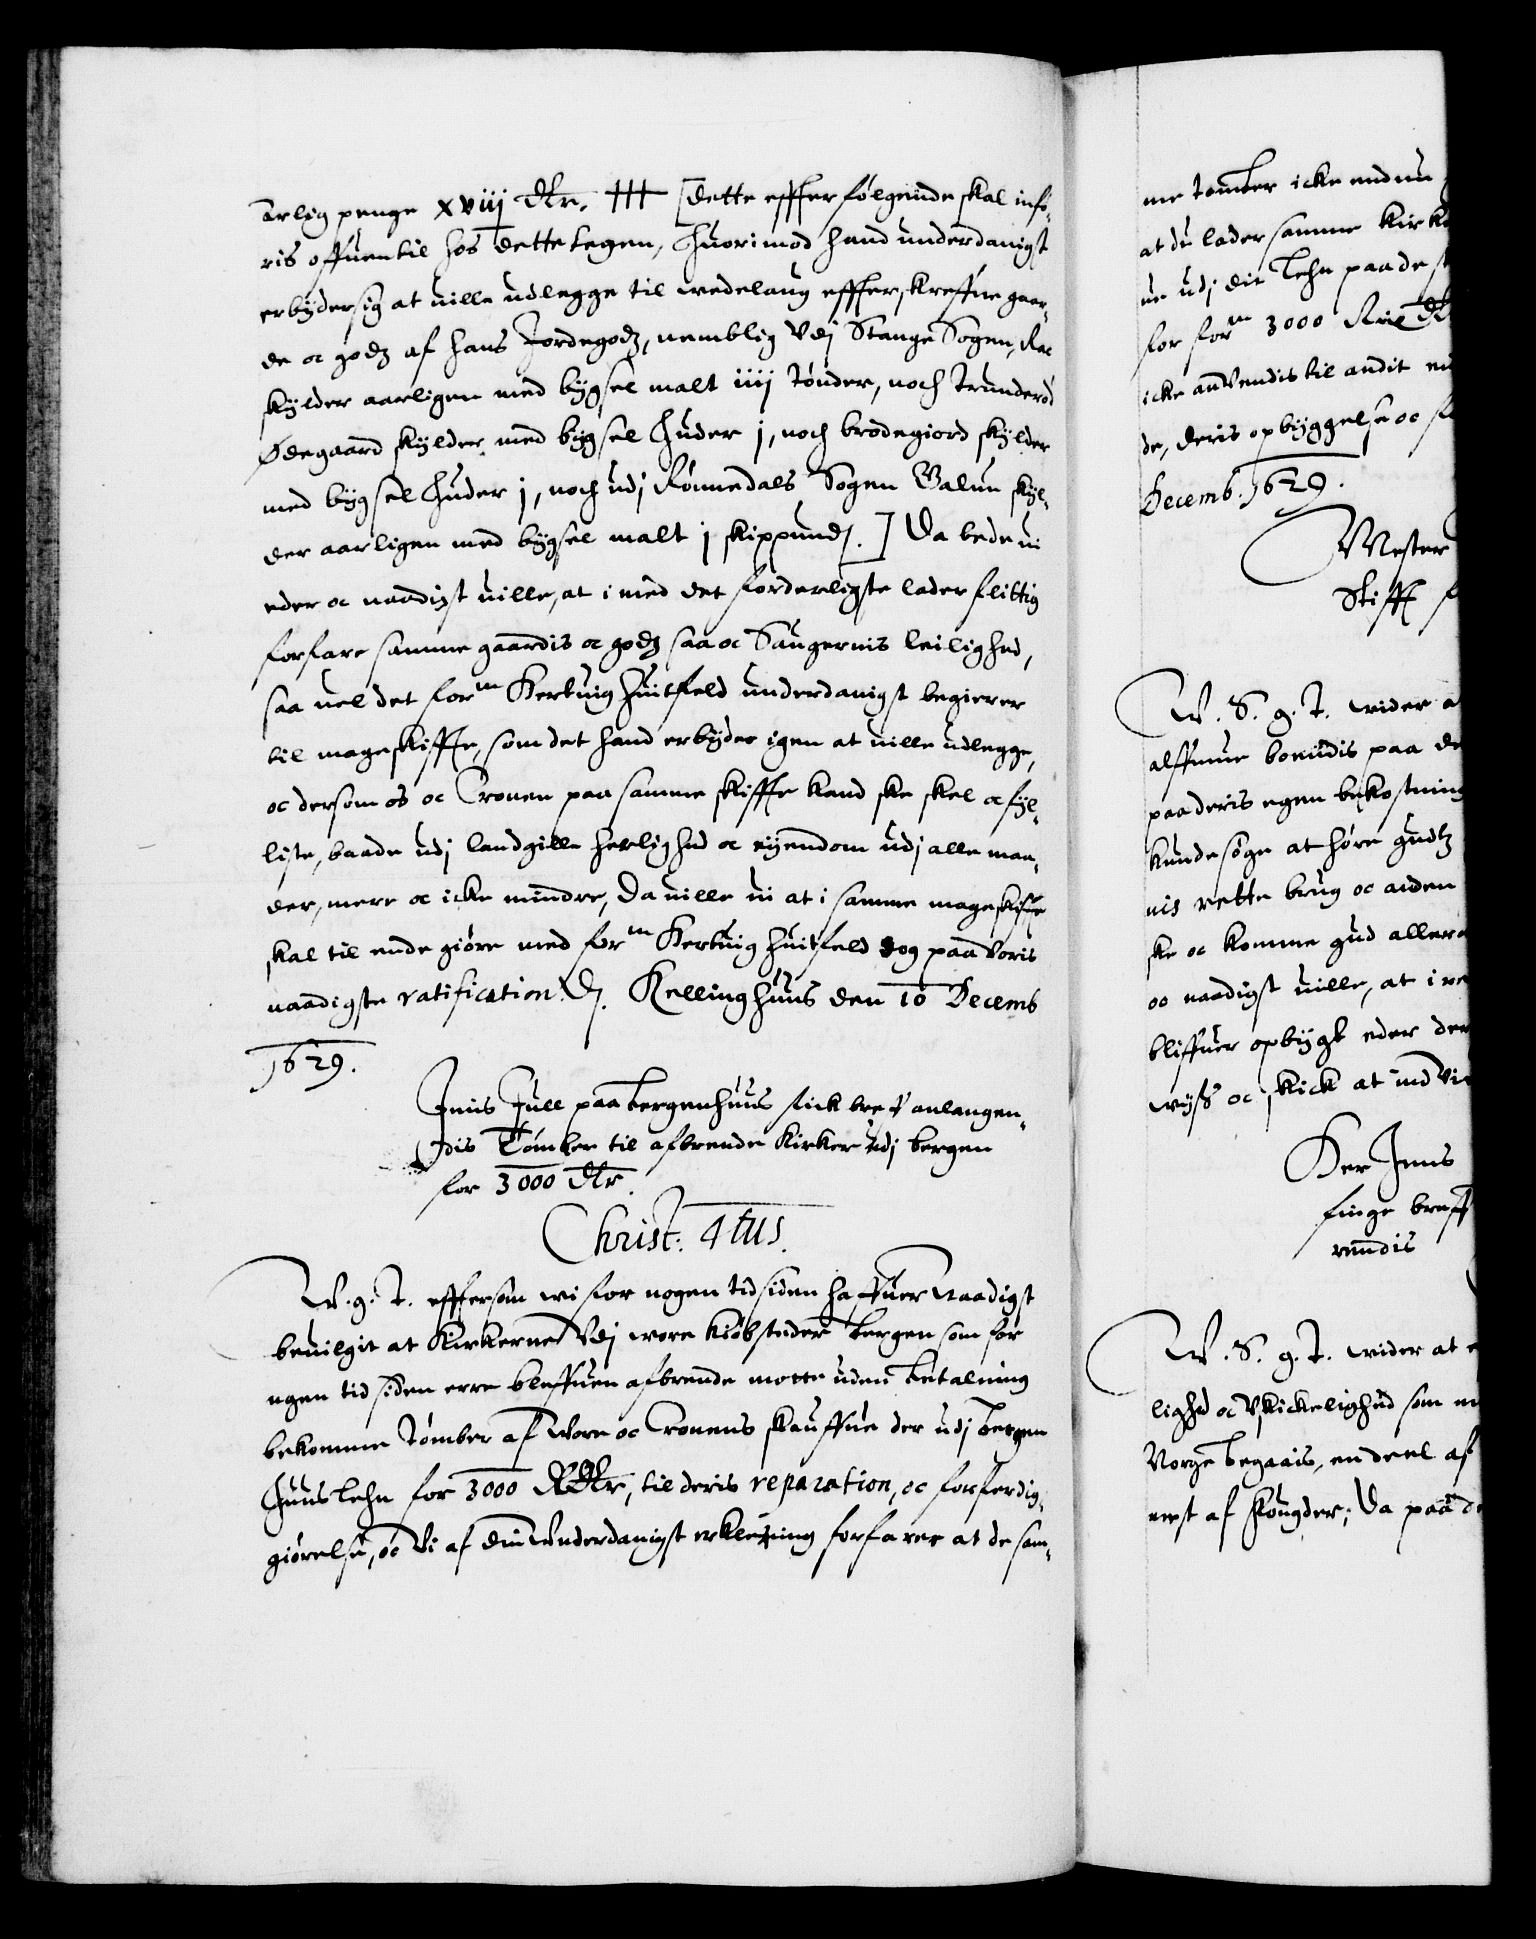 Arlig penge xviij dlr. ### [dette effterfølgende skal infø-
ris offuentil hos dette tegen, Huorimod hand underdanigst
erbydersig at uille udlegge til wederlaug effterskreffne gaar-
de oc godz af hans Jordegodz, nemblig Vdj Stange Sogen,
skylder aarligen med bygsel malt iiij tønder, noch Trunderød
Ødegaard skylder med bygsel Huder j, noch brodegiord skylder
med bygsel Huder j, noch udj Rømedals Sogen Valun skyl-
der aarligen med bygsel malt j skippund.] Da bede ui
eder oc naadigst uille, at i med det forderligste lader flittig
forfare samme gaardis oc godz saa oc Saugernis leilighed,
saa uel det form Hertuig Huitfeld underdanigst begierer
til mageskiffte, som det hand erbyder igen at uille udlegge,
oc dersom os oc Cronen paa samme skiffte kand ske skel oc fyl-
liste, baade udj landgille herlighed oc eyendom udj alle maa-
der, mere oc icke mindre, Da uille ui at i samme mageskifte
skal til ende giøre med form Hertuig Huitfeld dog paa Voris
naadigste ratification. D. Kellinghuus den 10 Decemb
1629.
Jens Juell paa Bergenhuus fick breff anlangen-
dis Tømber til afbrende Kirker udj Bergen
for 3000 dlr.
Christ: 4tus.
W. g. T. efftersom wi for nogen tid siden haffuer Naadigst
beuilgit at Kirkerne Vdj wore kiøbsteder Bergen som for
ngen tid siden erre bleffuen afbrende motte uden Betalning
bekomme Tømber af Wore oc Cronens skauffue der udj Bergen
Huus Lehn for 3000 Rdlr, til deris reparation, oc forferdig-
giørelse, oc Vi af din Underdanigst erklering forfarer at de sam-
me tømber icke endnu
at du lader samme Kirke
ne udj dit Lehn paa de st
for form 3000 Rix d
icke anvendis til andit en
de, deris opbyggelse oc f
Decemb. 1629.
Mester
Stifft
W. S. g. T. wider a
alffuene boendis paa de
paa deris egen bekostning
kunde søge at høre gudtz
nis rette brug oc anden
ske oc komme gud allera
oc naadigst uille, at i
bliffuer opbygt eder der
wyss oc skick at ind
Her Jens
finge breff
rendis
W. S. g. T. wider at
lighed oc Vskickelighed som
Norge begaais, en deel af
mest af fougder; Da paa d